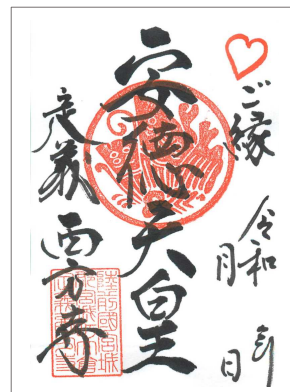 ご縁
令和 年
月 日
安徳天皇
定義 西方寺